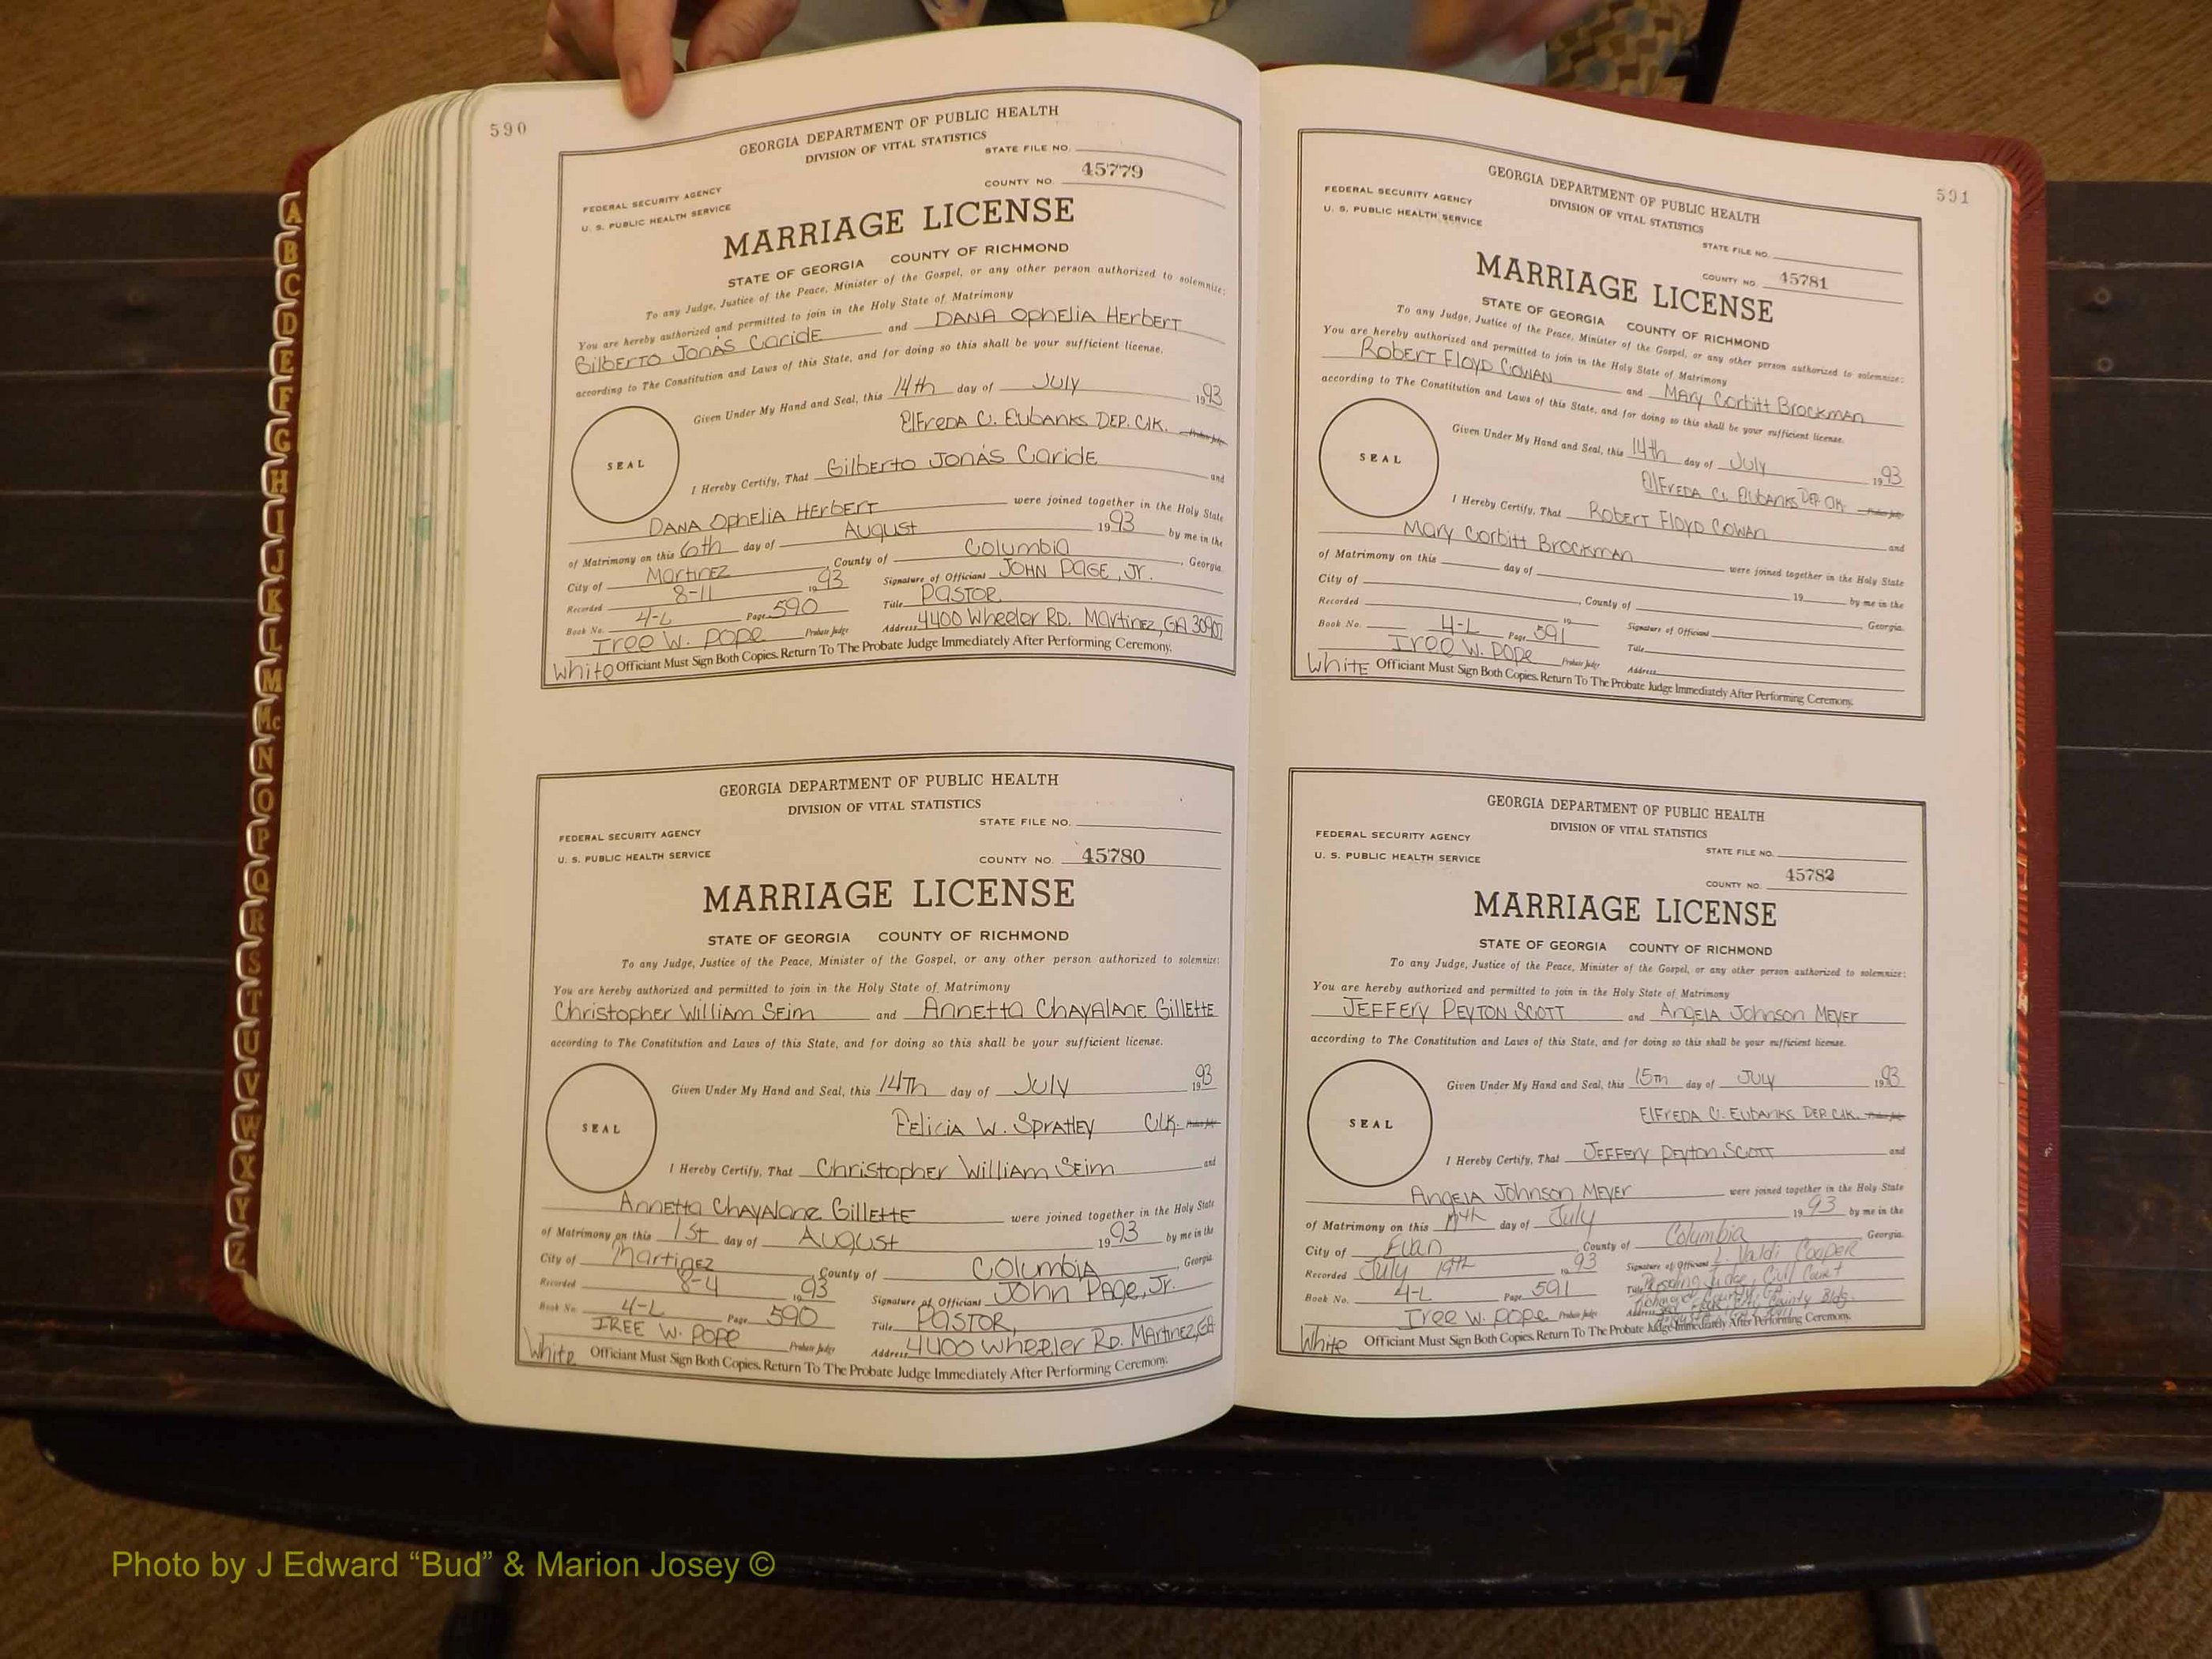 590
GEORGIA DEPARTMENT OF PUBLIC HEALTH
DIVISION OF VITAL STATISTICS
STATE FILE NO.
FEDERAL SECURITY AGENCY
U. S. PUBLIC HEALTH SERVICE
COUNTY NO. 45779
MARRIAGE LICENSE
STATE OF GEORGIA COUNTY OF RICHMOND
To any Judge, Justice of the Peace, Minister of the Gospel, or any other person authorized to solemnize:
You are hereby authorized and permitted to join in the Holy State of Matrimony
Gilberto Jonás Caride and Dana Ophelia Herbert
according to The Constitution and Laws of this State, and for doing so this shall be your sufficient license.
Given Under My Hand and Seal, this 14th day of July 1993
Elfreda C. Eubanks Dep. Clk.
SEAL
I Hereby Certify, That Gilberto Jonás Caride and
Dana Ophelia Herbert were joined together in the Holy State
of Matrimony on this 6th day of August 1993 by me in the
City of Martinez, County of Columbia, Georgia.
Recorded 8-11 1993 Signature of Officiant John Page, Jr.
Book No. 4-L Page 590 Title Pastor
Iree W. Pope Probate Judge Address 4400 Wheeler Rd. Martinez, GA 30907
White Officiant Must Sign Both Copies. Return To The Probate Judge Immediately After Performing Ceremony.
GEORGIA DEPARTMENT OF PUBLIC HEALTH
DIVISION OF VITAL STATISTICS
STATE FILE NO.
FEDERAL SECURITY AGENCY
U. S. PUBLIC HEALTH SERVICE
COUNTY NO. 45780
MARRIAGE LICENSE
STATE OF GEORGIA COUNTY OF RICHMOND
To any Judge, Justice of the Peace, Minister of the Gospel, or any other person authorized to solemnize:
You are hereby authorized and permitted to join in the Holy State of Matrimony
Christopher William Seim and Annetta Chayalane Gillette
according to The Constitution and Laws of this State, and for doing so this shall be your sufficient license.
Given Under My Hand and Seal, this 14Th day of July 1993
Felicia W. Spratley Clk.
SEAL
I Hereby Certify, That Christopher William Seim and
Annetta Chayalane Gillette were joined together in the Holy State
of Matrimony on this 1st day of August 1993 by me in the
City of Martinez, County of Columbia Georgia.
Recorded 8-4 1993 Signature of Officiant John Page, Jr.
Book No. 4-L Page 590 Title Pastor,
Iree W. Pope Probate Judge Address 4400 Wheeler Rd. Martinez, GA
White Officiant Must Sign Both Copies. Return To The Probate Judge Immediately After Performing Ceremony.
591
GEORGIA DEPARTMENT OF PUBLIC HEALTH
DIVISION OF VITAL STATISTICS
FEDERAL SECURITY AGENCY
U. S. PUBLIC HEALTH SERVICE
STATE FILE NO.
COUNTY NO. 45781
MARRIAGE LICENSE
STATE OF GEORGIA COUNTY OF RICHMOND
To any Judge, Justice of the Peace, Minister of the Gospel, or any other person authorized to solemnize:
You are hereby authorized and permitted to join in the Holy State of Matrimony
Robert Floyd Cowan and Mary Corbitt Brockman
according to The Constitution and Laws of this State, and for doing so this shall be your sufficient license.
Given Under My Hand and Seal, this 14th day of July 1993
Elfreda C. Eubanks Dep Clk.
SEAL
I Hereby Certify, That Robert Floyd Cowan and
Mary Corbitt Brockman were joined together in the Holy State
of Matrimony on this day of 19 by me in the
City of , County of Georgia.
Recorded 19 Signature of Officiant
Book No. 4-L Page 591 Title
Iree W. Pope Probate Judge Address
White Officiant Must Sign Both Copies. Return To The Probate Judge Immediately After Performing Ceremony.
GEORGIA DEPARTMENT OF PUBLIC HEALTH
DIVISION OF VITAL STATISTICS
FEDERAL SECURITY AGENCY
STATE FILE NO.
U. S. PUBLIC HEALTH SERVICE
COUNTY NO. 45782
MARRIAGE LICENSE
STATE OF GEORGIA COUNTY OF RICHMOND
To any Judge, Justice of the Peace, Minister of the Gospel, or any other person authorized to solemnize:
You are hereby authorized and permitted to join in the Holy State of Matrimony
Jeffery Peyton Scott and Angela Johnson Meyer
according to The Constitution and Laws of this State, and for doing so this shall be your sufficient license.
Given Under My Hand and Seal, this 15th day of July 1993
Elfreda C. Eubanks Dep Clk.
SEAL
I Hereby Certify, That Jeffery Peyton Scott and
Angela Johnson Meyer were joined together in the Holy State
of Matrimony on this day of July 1993 by me in the
City of Evan, County of Columbia Georgia.
Recorded July 19th 1993 Signature of Officiant Cooper
Book No. 4-L Page 591 Title Judge, Civil Court
Iree W. Pope Probate Judge Address County Bldg.
White Officiant Must Sign Both Copies. Return To The Probate Judge Immediately After Performing Ceremony.
A
B
C
D
E
F
G
H
I
J
K
L
M
Mc
N
O
P
Q
R
S
T
U
V
W
X
Y
Z
Photo by J Edward “Bud” & Marion Josey ©